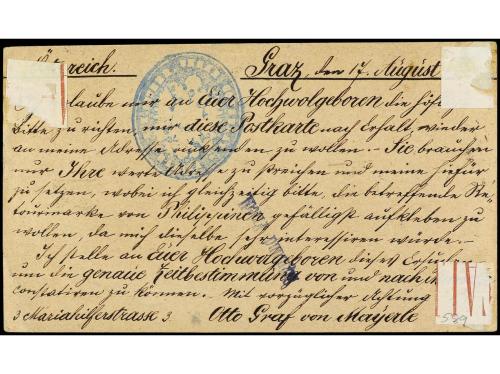 Österreich. Graz, den 17. August
erlaube mir an Euer Hochwolgeboren die höf
Bitte zu richten, mir diese Postkarte nach Erhalt, wieder
an meine Adresse zu wollen. – Sie brauchen
nur Ihre werte Adresse zu streichen und meine hinzu
zu setzen, wobei ich gleichzeitig bitte, die betreffende Re-
tourmarke von Philippinen gefälligst aufkleben zu
wollen, da mich dieselbe sehr interessiren würde. –
Ich stelle an Euer Hochwolgeboren dieses Ersuchen
um die genaue Zeitbestimmung von und nach
constatiren zu können. – Mit vorzüglicher Achtung
3 Mariahilferstrasse 3. Otto Graf von Mayerle
559